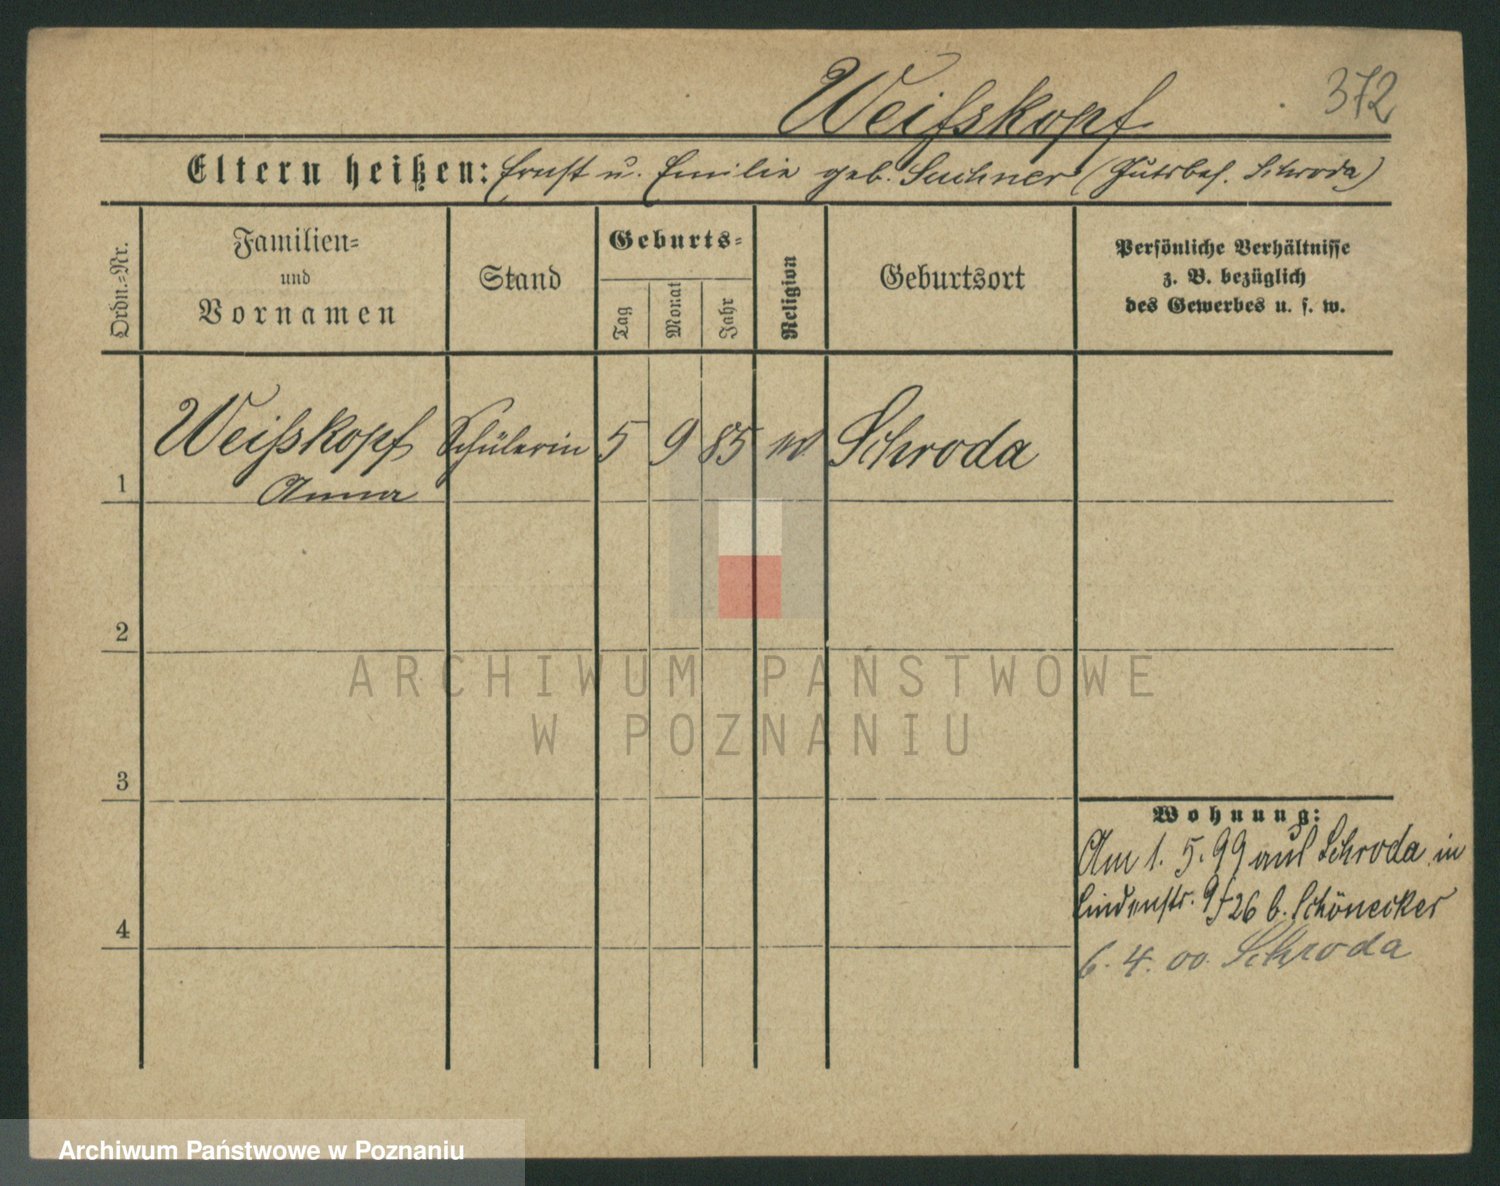 Weißskopf 372
Eltern heißen: Ernst u. Emilie geb. Suchner (Gutsbes. Schroda)
Ordn.-Nr.
Familien-
und
Vornamen
Stand
Geburts-
Tag
Monat
Jahr
Religion
Geburtsort
Persönliche Verhältnisse
z. B. bezüglich
des Gewerbes u. s. w.
1 Weißskopf Schülerin 5 9 85 Schroda
Anna
2
3
4
ARCHIWUM PAŃSTWOWE
W POZNANIU
Wohnung:
Am 1. 5. 99 aus Schroda in
Lindenstr. 9/26 b. Schönecker
6. 4. 00. Schroda
Archiwum Państwowe w Poznaniu